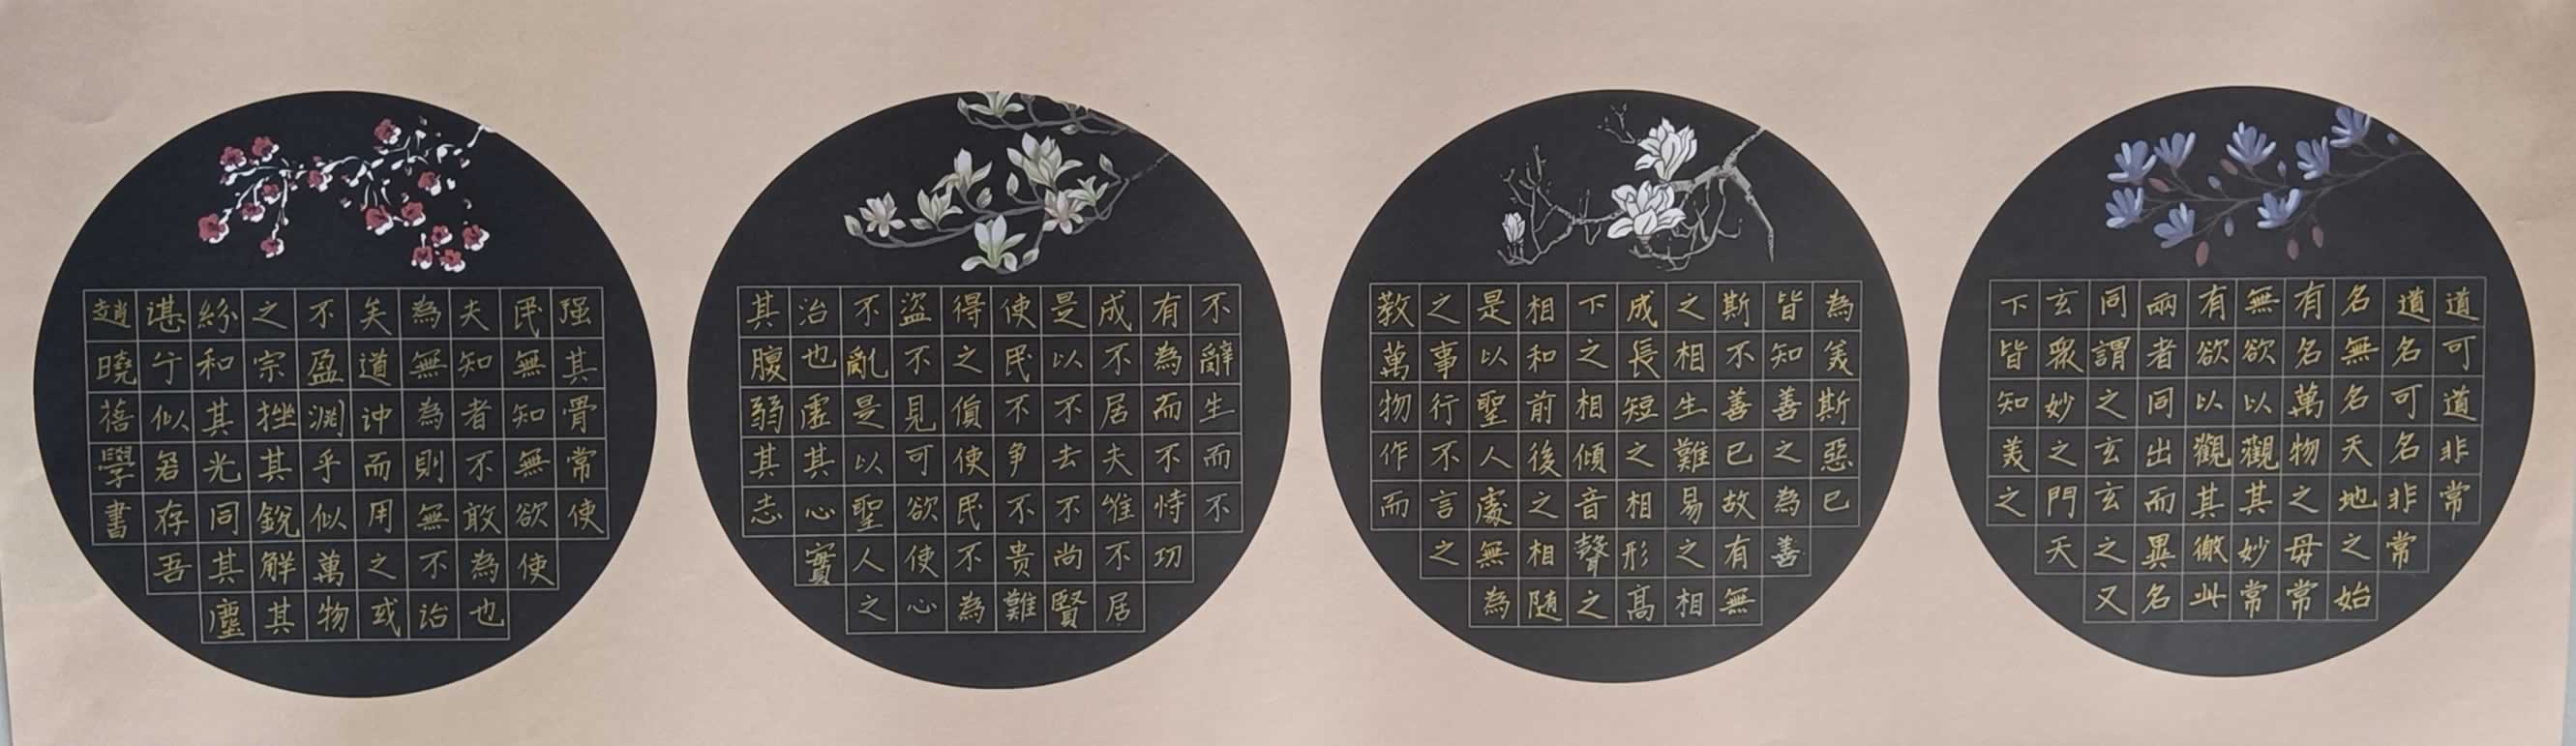 道可道非常
道名可名非常
名無名天地之始
有名萬物之母常
無欲以觀其妙常
有欲以觀其徼此
兩者同出而異名
同謂之玄玄之又
玄眾妙之門天
下皆知美之
為美斯惡已
皆知善之為善
斯不善已故有無
之相生難易之相
成長短之相形高
下之相傾音聲之
相和前後之相随
是以聖人處無為
之事行不言之
教萬物作而
不辭生而不
有為而不恃功
成不居夫惟不居
是以不去不尚賢
使民不争不贵難
得之貨使民不為
盜不見可欲使心
不亂是以聖人之
治也虛其心實
其腹弱其志
强其骨常使
民無知無欲使
夫知者不敢為也
為無為則無不治
矣道冲而用之或
不盈淵乎似萬物
之宗挫其銳解其
紛和其光同其塵
湛兮似若存吾
趙曉蓓學書